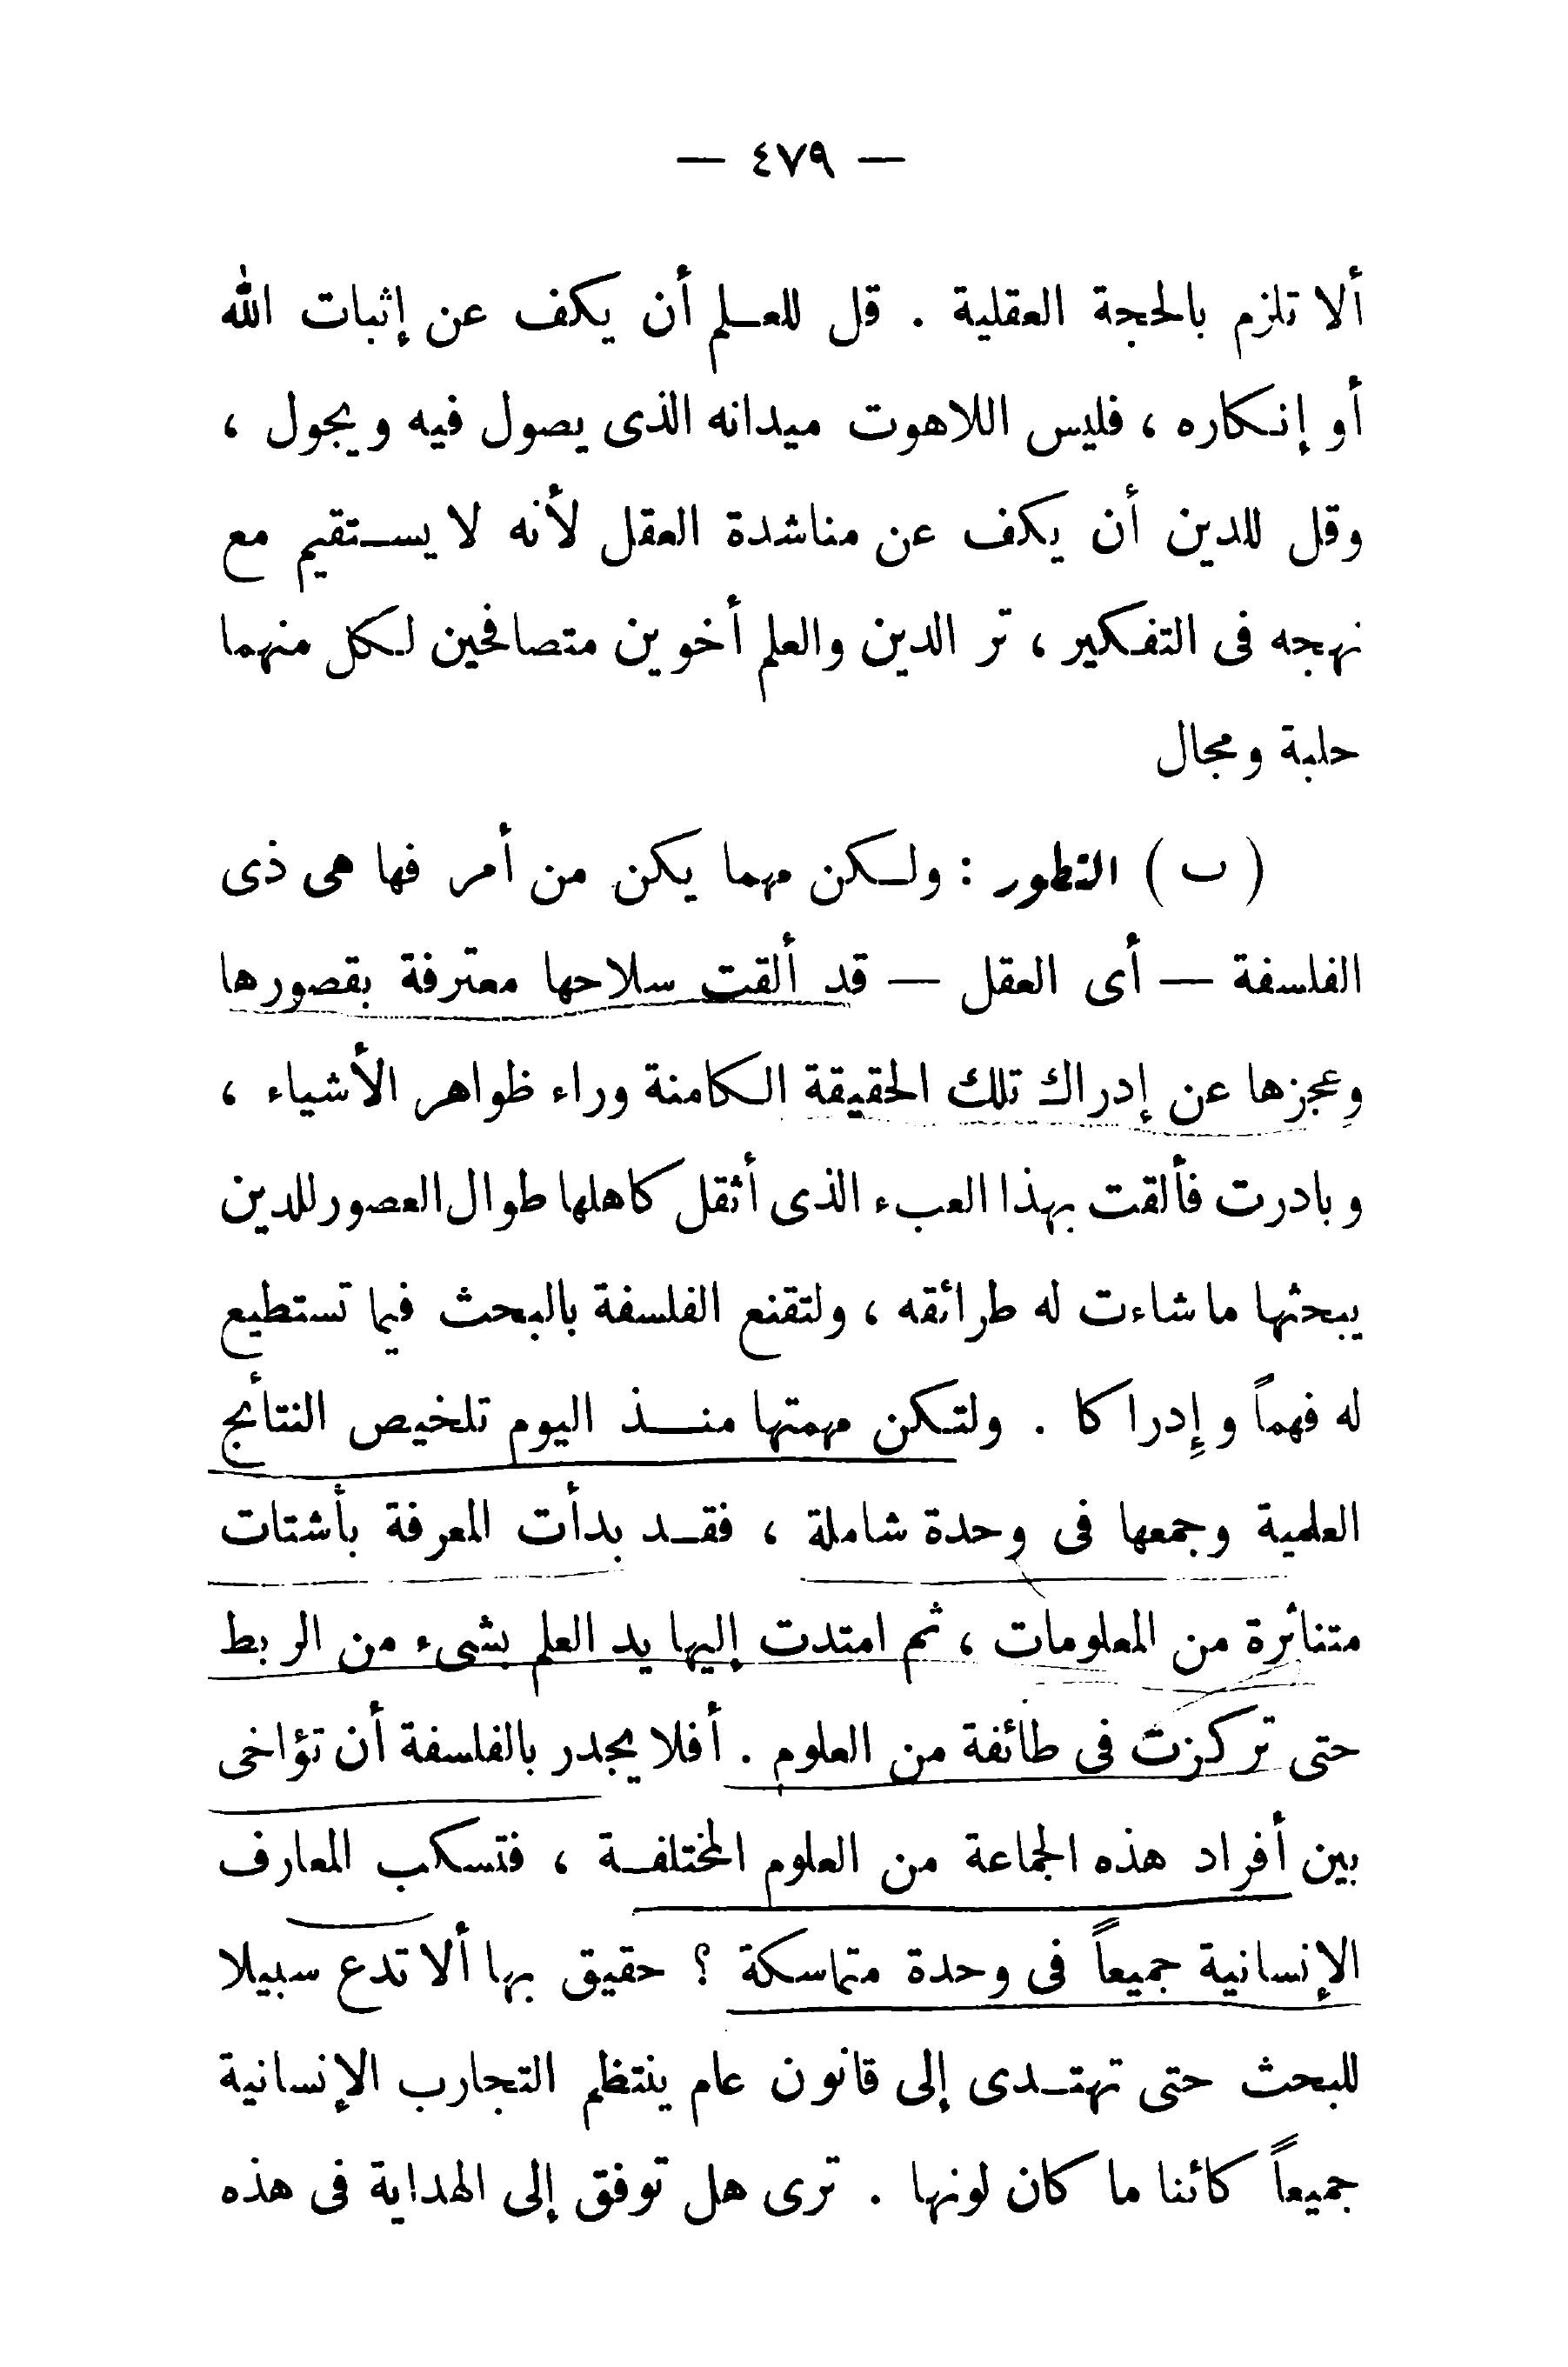 — ٤٧٩ —
ألا تلزم بالحجة العقلية . قل للعلم أن يكف عن إثبات الله
أو إنكاره ، فليس اللاهوت ميدانه الذى يصول فيه ويجول ،
وقل للدين أن يكف عن مناشدة العقل لأنه لا يستقيم مع
نهجه فى التفكير ، تر الدين والعلم أخوين متصافحين لكل منهما
حلبة ومجال
( ب ) التطور : ولكن مهما يكن من أمر فها هى ذى
الفلسفة — أى العقل — قد ألقت سلاحها معترفة بقصورها
وعجزها عن إدراك تلك الحقيقة الكامنة وراء ظواهر الأشياء ،
وبادرت فألقت بهذا العبء الذى أثقل كاهلها طوال العصور للدين
يبحثها ما شاءت له طرائقه ، ولتقنع الفلسفة بالبحث فيما تستطيع
له فهماً وإدراكا . ولتكن مهمتها منذ اليوم تلخيص النتائج
العلمية وجمعها فى وحدة شاملة ، فقد بدأت المعرفة بأشتات
متناثرة من المعلومات ، ثم امتدت إليها يد العلم بشىء من الربط
حتى تركزت فى طائفة من العلوم . أفلا يجدر بالفلسفة أن تؤاخى
بين أفراد هذه الجماعة من العلوم المختلفة ، فتسكب المعارف
الإنسانية جميعاً فى وحدة متماسكة ؟ حقيق بها ألا تدع سبيلا
للبحث حتى تهتدى إلى قانون عام ينتظم التجارب الإنسانية
جميعاً كائنا ما كان لونها . ترى هل توفق إلى الهداية فى هذه